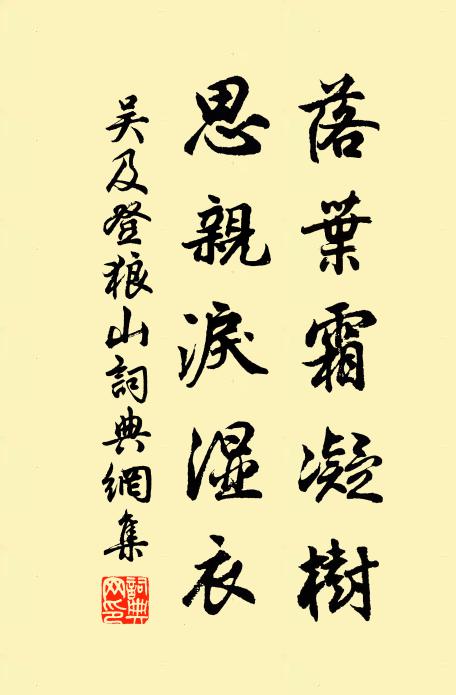 落葉霜凝樹
思親淚湿衣
吴及登狼山詞典網集
詞典網印